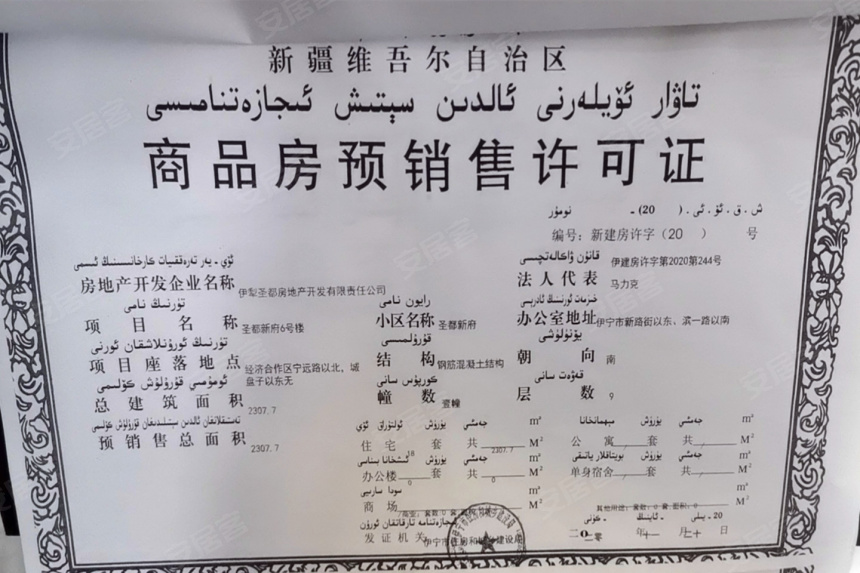 新疆维吾尔自治区
تاۋار ئۆيلەرنى ئالدىن سېتىش ئىجازەتنامىسى
商品房预销售许可证
ش . ق . ئۆ . ئى . (20 ) - نومۇر
编号：新建房许字（20 ） 号
伊建房许字第2020第244号
قانۇن ۋاكالەتچىسى
房地产开发企业名称 伊犁圣都房地产开发有限责任公司
法人代表 马力克
تۈرنىڭ نامى
رايون نامى
项目名称 圣都新府6号楼
小区名称 圣都新府
办公室地址 伊宁市新路街以东、滨一路以南
قۇرۇلمىسى
يۆنۈلۈشى
项目座落地点 经济合作区宁远路以北，城盘子以东无
结构 钢筋混凝土结构
朝向 南
ئومۇمىي قۇرۇلۇش كۆلىمى
كورپۇس سانى
قەۋەت سانى
总建筑面积 2307.7
幢数 壹幢
层数 9
预销售总面积 2307.7
جەمئىي يۈرۈش m²
住宅 18 套 共 2307.7 M²
公寓 套 共 M²
办公楼 0 套 共 0 M²
单身宿舍 套 共 M²
سودا سارىيى m²
商场 M²
发证机关 伊宁市住房和城乡建设局
二〇二零 年 十一 月 二十 日
安居客